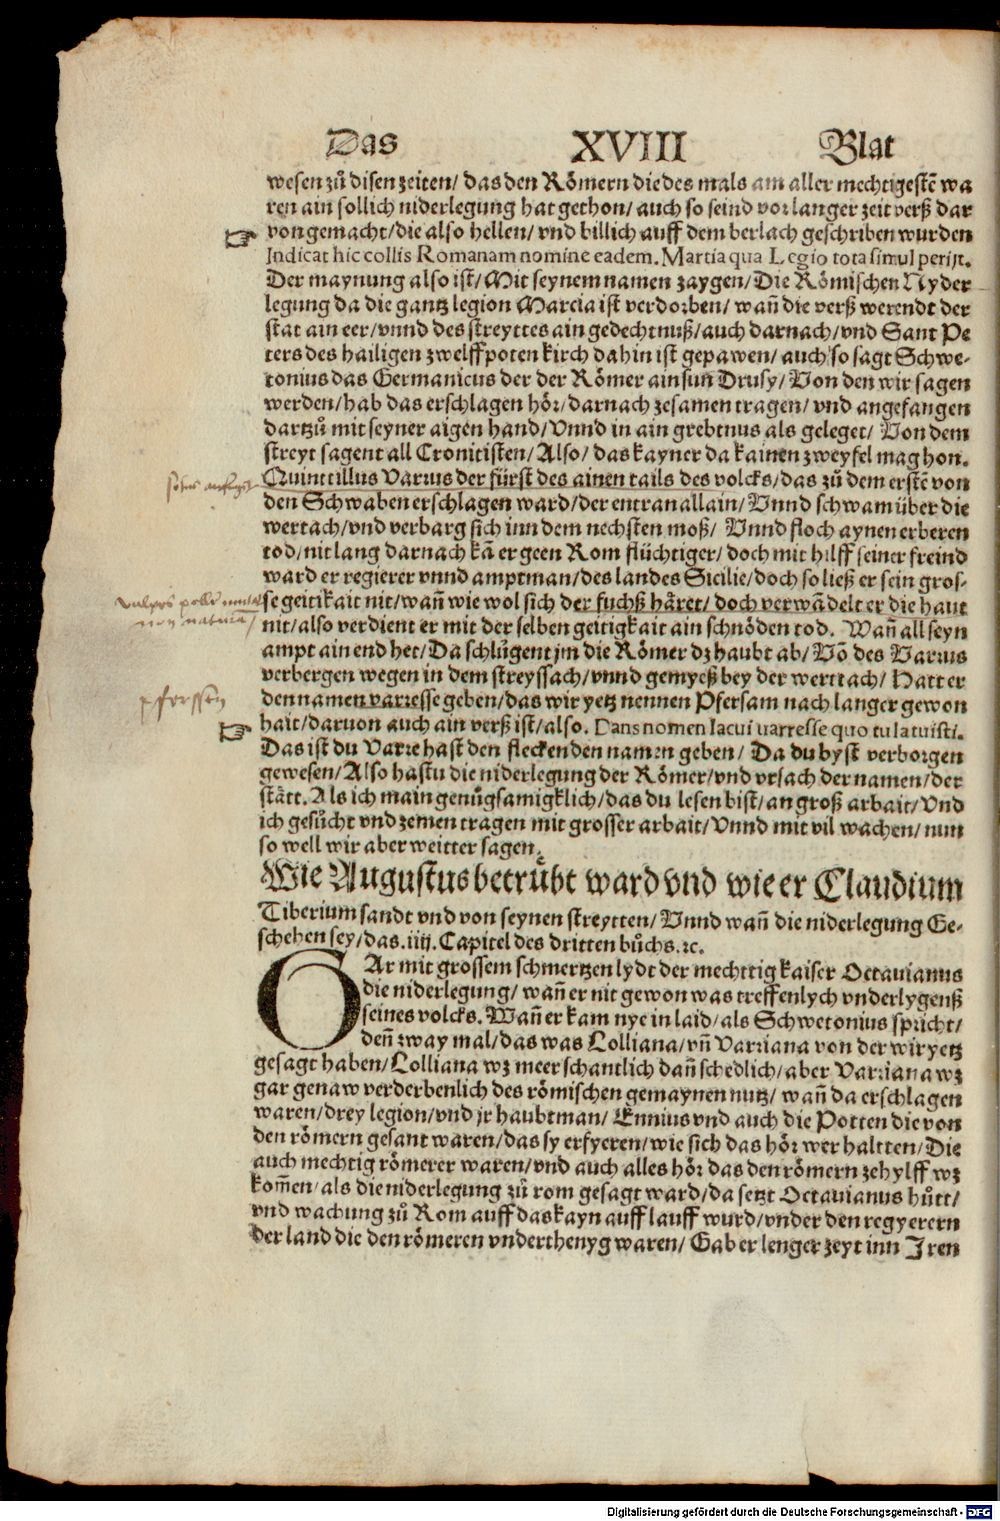 Das XVIII Blat
wesen zů disen zeiten/ das den Römern die des mals am aller mechtigestē wa
ren ain sollich niderlegung hat gethon/ auch so seind vor langer zeit verß dar
von gemacht/ die also hellen/ vnd billich auff dem berlach geschriben wurden
Indicat hic collis Romanam nomine eadem. Martia qua Legio tota simul perijt.
Der maynung also ist/ Mit seynem namen zaygen/ Die Römischen Nyder
legung da die gantz legion Marcia ist verdorben/ wañ die verß werendt der
stat ain eer/ vnnd des streyttes ain gedechtnuß/ auch darnach/ vnd Sant Pe
ters des hailigen zwelffpoten kirch dahin ist gepawen/ auch so sagt Schwe-
tonius das Germanicus der der Römer ain sun Drusy/ Von den wir sagen
werden/ hab das erschlagen hör/ darnach zesamen tragen/ vnd angefangen
dartzů mit seyner aigen hand/ Vnnd in ain grebtnus als geleget/ Von dem
streyt sagent all Cronicisten/ Also/ das kayner da kainen zweyfel mag hon.
Quinctillus Varius der fürst des ainen tails des volcks/ das zů dem erstē von
den Schwaben erschlagen ward/ der entran allain/ Vnnd schwam über die
wertach/ vnd verbarg sich inn dem nechsten moß/ Vnnd floch aynen erberen
tod/ nit lang darnach kā er geen Rom flüchtiger/ doch mit hilff seiner freind
ward er regierer vnnd amptman/ des landes Sicilie/ doch so ließ er sein gros-
se geitikait nit/ wañ wie wol sich der fuchß häret/ doch verwādelt er die haut
nit/ also verdient er mit der selben geitigkait ain schnöden tod. Wañ all seyn
ampt ain end het/ Da schlůgent jm die Römer dz haubt ab/ Vō des Varius
verbergen wegen in dem streyssach/ vnnd gemyeß bey der werttach/ Hatt er
den namen varresse geben/ das wir yetz nennen Pfersam nach langer gewon
pfersßen
hait/ daruon auch ain verß ist/ also. Dans nomen lacui uarresse quo tu latuisti.
Das ist du Varre hast den flecken den namen geben/ Da du byst verborgen
gewesen/ Also hastu die niderlegung der Römer/ vnd vrsach der namen/ der
stätt. Als ich main genůgsamigklich/ das du lesen bist/ an groß arbait/ Vnd
ich gesůcht vnd zemen tragen mit grosser arbait/ Vnnd mit vil wachen/ nun
so well wir aber weitter sagen.
Wie Augustus betrůbt ward vnd wie er Claudium
Tiberium sandt vnd von seynen streytten/ Vnnd wañ die niderlegung Ge-
schehen sey/ das .iiij. Capitel des dritten bůchs. ꝛc.
GAr mit grossem schmertzen lydt der mechttig kaiser Octauianus
die niderlegung/ wañ er nit gewon was treffenlych vnderlygenß
seines volcks. Wañ er kam nye in laid/ als Schwetonius spricht/
deñ zway mal/ das was Lolliana/ vñ Varriana von der wir yetz
gesagt haben/ Lolliana wz meer schantlich dañ schedlich/ aber Varriana wz
gar genaw verderbenlich des römischen gemaynen nutz/ wañ da erschlagen
waren/ drey legion/ vnd jr haubtman/ Ennius vnd auch die Potten die von
den römern gesant waren/ das sy erfyeren/ wie sich das hör wer haltten/ Die
auch mechtig römerer waren/ vnd auch alles hör das den römern ze hylff wz
kom̄en/ als die niderlegung zů rom gesagt ward/ da setzt Octauianus hůtt/
vnd wachung zů Rom auff das kayn aufflauff wurd/ vnder den regyerern
der land die den römeren vnderthenyg waren/ Gab er lenger zeyt inn Iren
Digitalisierung gefördert durch die Deutsche Forschungsgemeinschaft - DFG